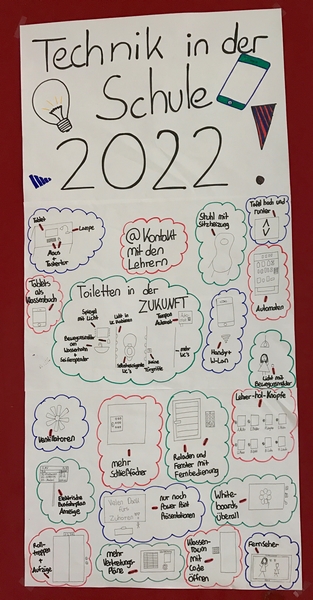 Technik in der
Schule
2022
Tablet
Lampe
Maus
Tastertur
@ Kontakt
mit den
Lehrern
Stuhl mit
Sitzheizung
Tafel hoch und
runter
Tablets
als
Klassenbuch
Toiletten in der
ZUKUNFT
Spiegel
mit Licht
Licht in
WC Kabinen
Tampon
Automat
Bewegungsmelder
am
Wasserhahn
+
Seifenspender
keine
Türgriffe
mehr
WC's
Automaten
Handy+
W-Lan
Licht mit
Bewegungsmelder
Ventilatoren
mehr
Schließfächer
Roladen und
Fenster mit
Fernbedienung
Lehrer-hol-Knöpfe
Elektrische
Busfahrplan
Anzeige
Vielen Dank
fürs
Zuhören
nur noch
Power Point
Präsentationen
White-
boards
überall
Roll-
treppen
+
Aufzüge
mehr
Vertretungs-
Pläne
Klassen-
raum
mit
Code
öffnen
Fernseher